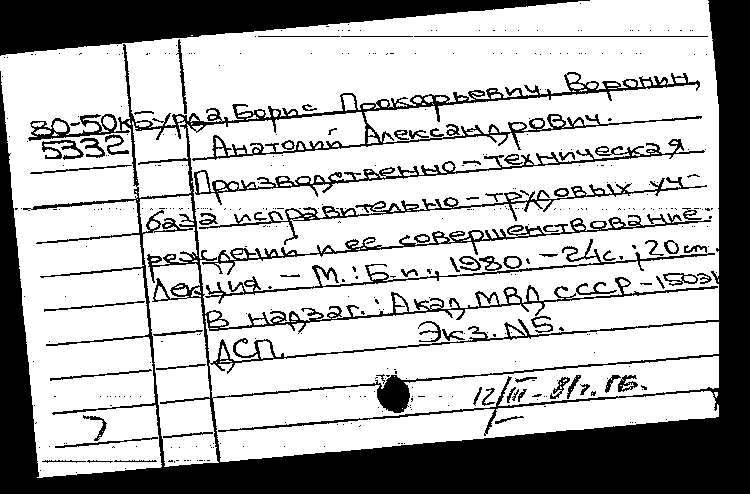 80-50к Бурда, Борис Прокофьевич, Воронин,
5332 Анатолий Александрович.
Производственно-техническая
база исправительно-трудовых уч-
реждений и ее совершенствование:
Лекция. - М.: Б.и., 1980. - 24с.; 20 см.
В надзаг.: Акад. МВД СССР. - 150э
ДСП. Экз. N5.
12/III-81г. ГБ.